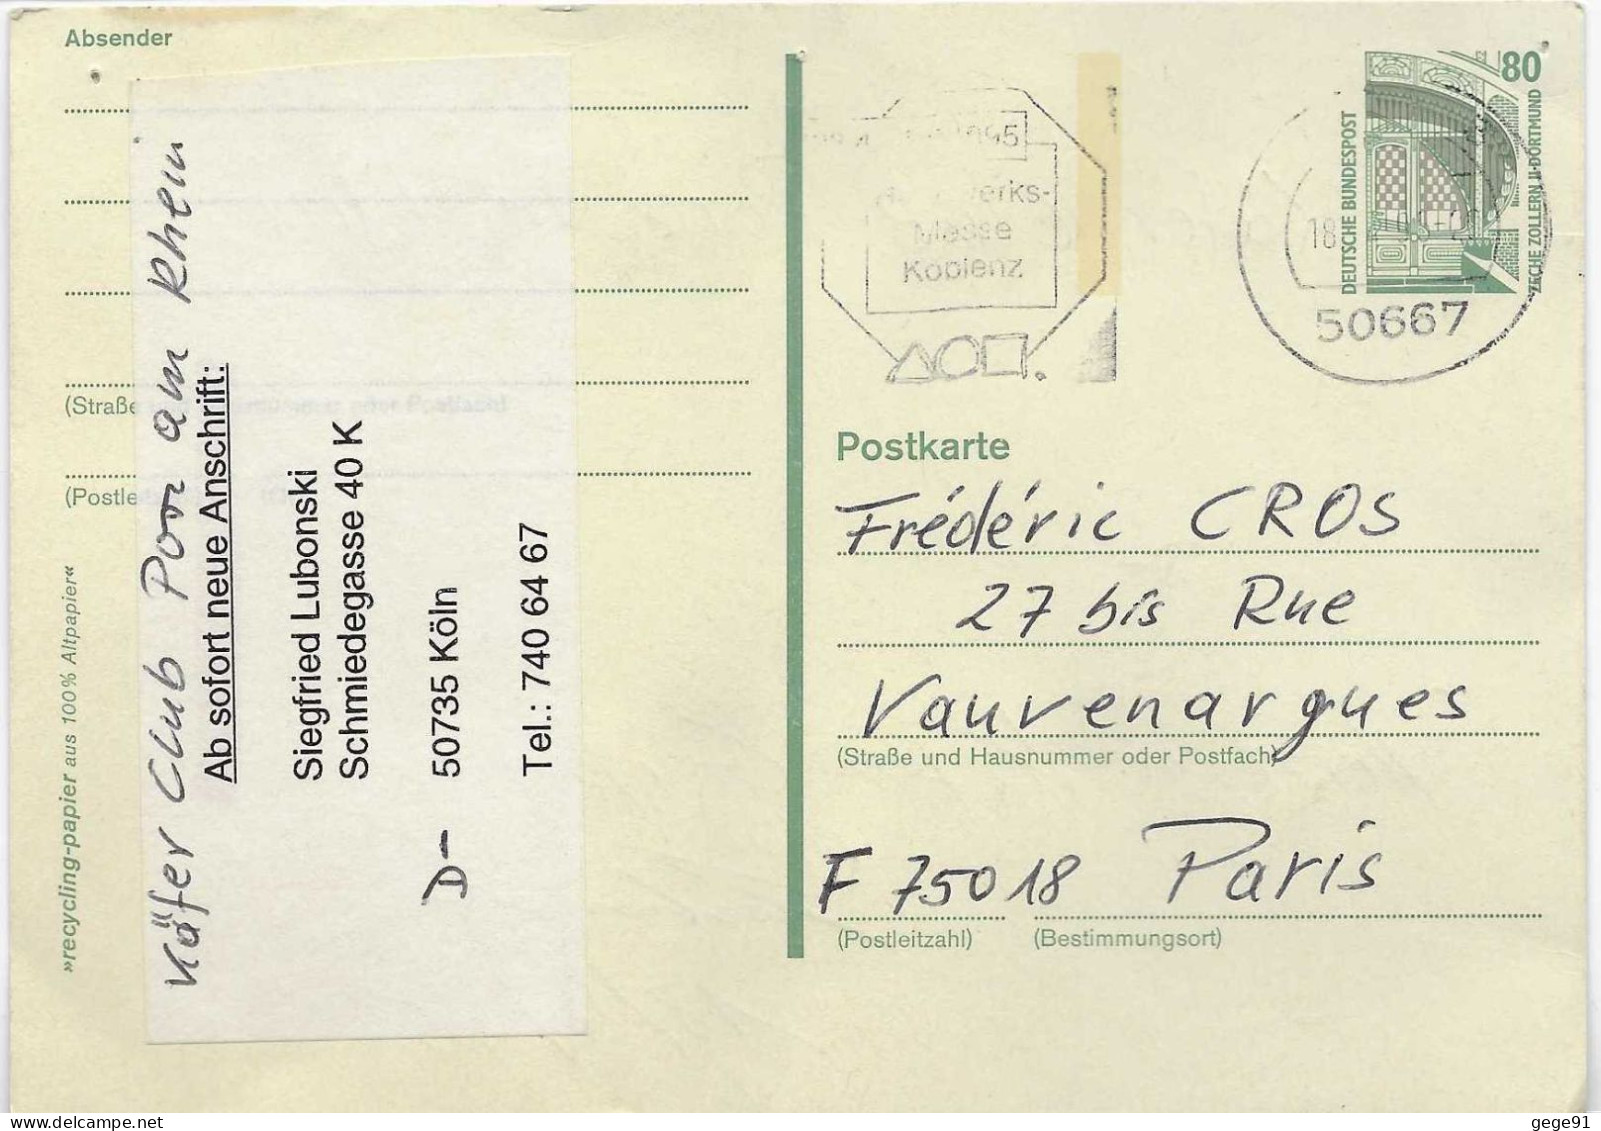 Absender
(Straße
(Postle
»recycling-papier aus 100% Altpapier«
Käfer Club Porz am Rhein
Ab sofort neue Anschrift:
Siegfried Lubonski
Schmiedegasse 40 K
D- 50735 Köln
Tel.: 740 64 67
1995
werks-
Messe
Koblenz
80
DEUTSCHE BUNDESPOST
ZECHE ZOLLERN II · DORTMUND
18
50667
Postkarte
Frédéric CROS
27 bis Rue
Vauvenargues
(Straße und Hausnummer oder Postfach)
F 75018 Paris
(Postleitzahl) (Bestimmungsort)
gege91